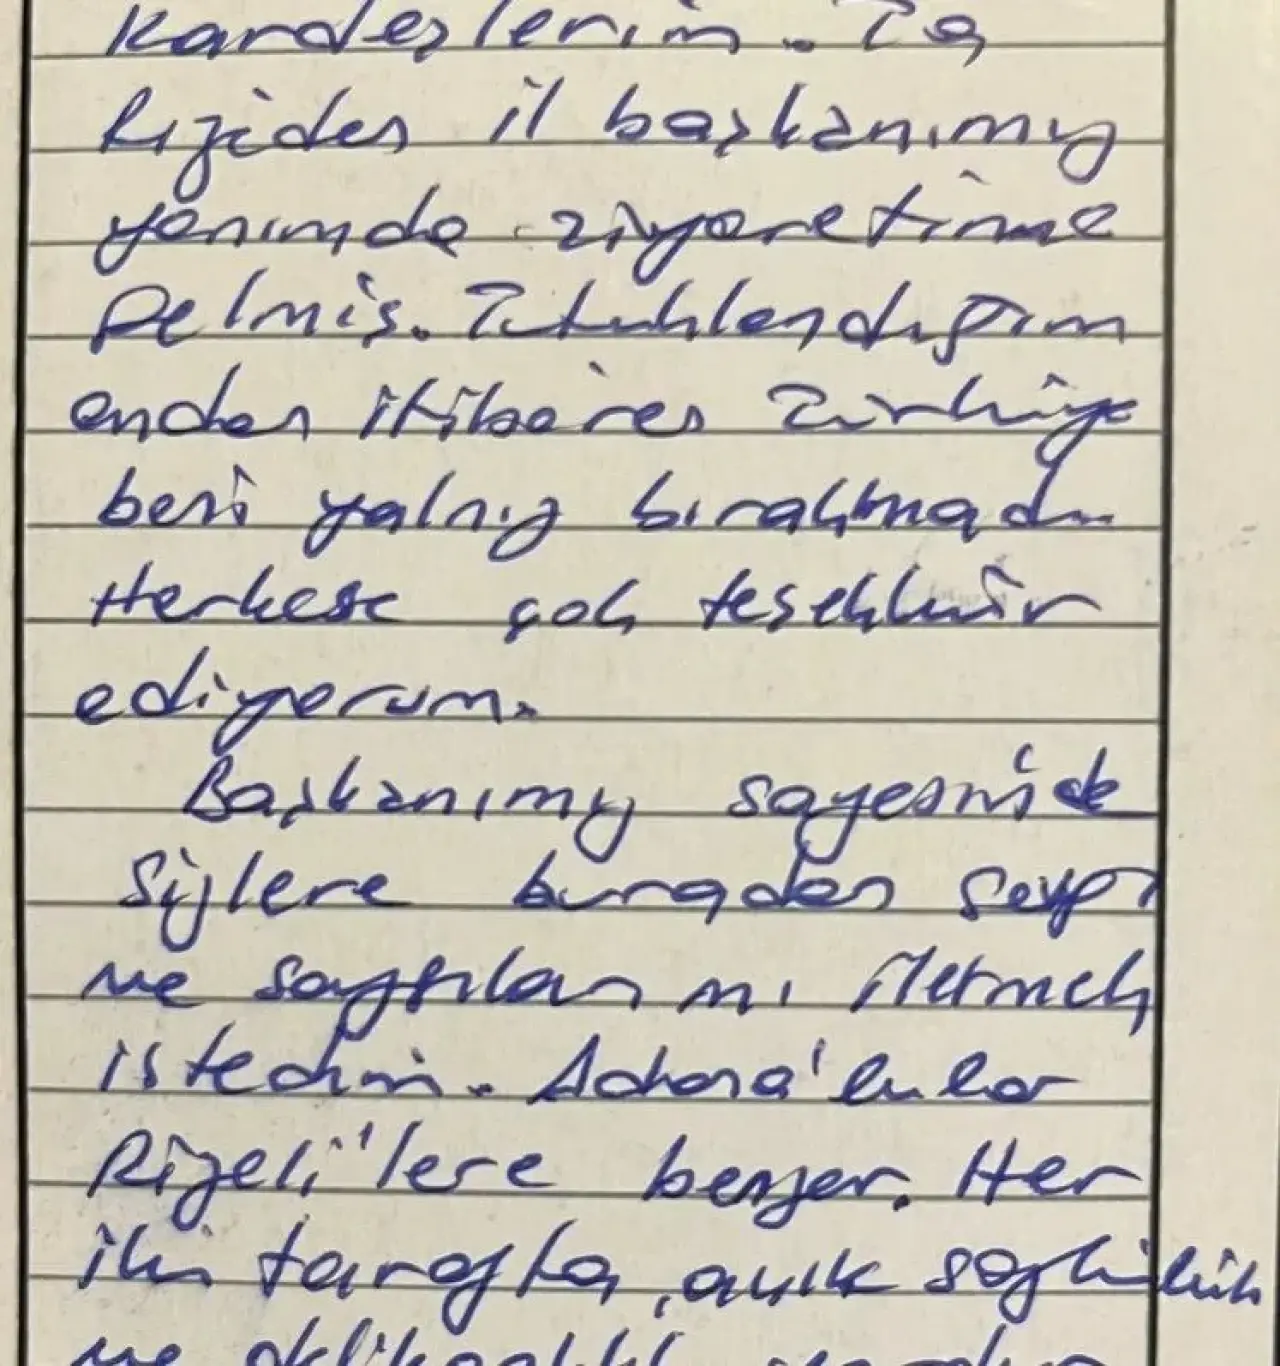 Kardeşlerim. Ta
Rizeden il başkanımız
yanımda ziyaretime
gelmiş. Tutuklandığım
andan itibaren Türkiye
beni yalnız bırakmadı.
Herkese çok teşekkür
ediyorum.
Başkanımız sayesinde
Sizlere buradan sevgi
ve saygılarımı iletmek
istedim. Adana'lılar
Rizeli'lere benzer. Her
iki tarafta, açık sözlülük
ve delikanlılık vardır